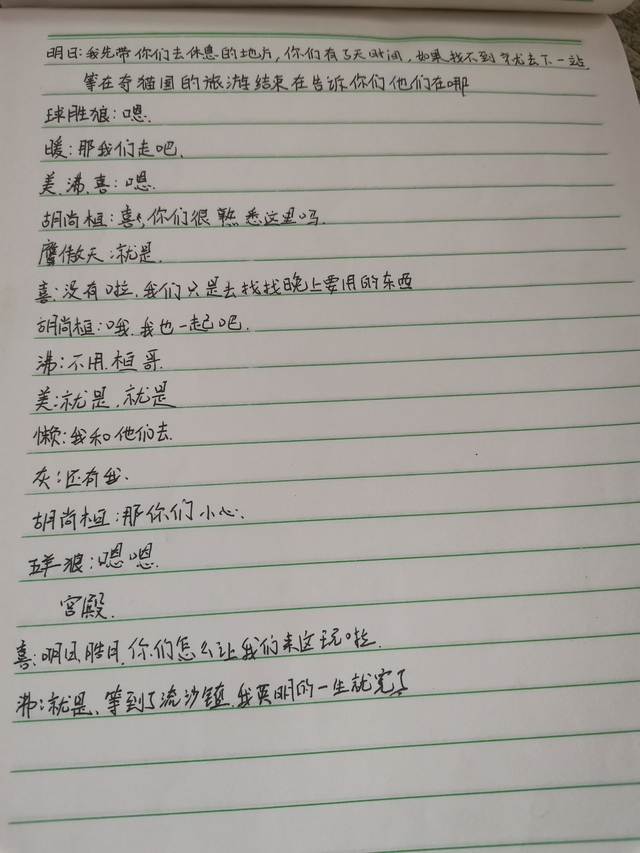 明日:我先带你们去休息的地方,你们有3天时间,如果找不到就去下一站.
等在奇猫国的旅游结束在告诉你们他们在哪
球胜狼:嗯.
暖:那我们走吧.
美.沸.喜:嗯.
胡尚桓:喜,你们很熟悉这里吗.
鹰傲天:就是.
喜:没有啦.我们只是去找找晚上要用的东西
胡尚桓:哦.我也一起吧.
沸:不用.桓哥.
美:就是.就是
懒:我和他们去.
灰:还有我.
胡尚桓:那你们小心.
五羊狼:嗯嗯.
宫殿.
喜:明日.皓月.你们怎么让我们来这玩啦.
沸:就是、等到了流沙镇.我英明的一生就完了